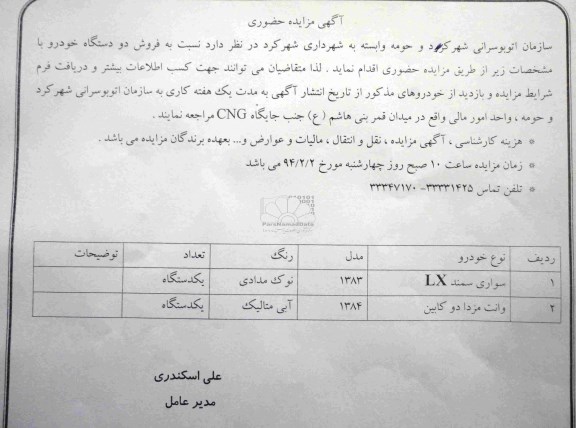 آگهی مزایده حضوری
سازمان اتوبوسرانی شهرکرد و حومه وابسته به شهرداری شهرکرد در نظر دارد نسبت به فروش دو دستگاه خودرو با
مشخصات زیر از طریق مزایده حضوری اقدام نماید . لذا متقاضیان می توانند جهت کسب اطلاعات بیشتر و دریافت فرم
شرایط مزایده و بازدید از خودروهای مذکور از تاریخ انتشار آگهی به مدت یک هفته کاری به سازمان اتوبوسرانی شهرکرد
و حومه ، واحد امور مالی واقع در میدان قمر بنی هاشم (ع) جنب جایگاه CNG مراجعه نمایند .
* هزینه کارشناسی ، آگهی مزایده ، نقل و انتقال ، مالیات و عوارض و... بعهده برندگان مزایده می باشد .
* زمان مزایده ساعت ۱۰ صبح روز چهارشنبه مورخ ۹۴/۲/۲ می باشد
* تلفن تماس ۳۳۳۳۱۴۲۵- ۳۳۳۴۷۱۷۰
ParsNamadData
ردیف نوع خودرو مدل رنگ تعداد توضیحات
۱ سواری سمند LX ۱۳۸۳ نوک مدادی یکدستگاه
۲ وانت مزدا دو کابین ۱۳۸۴ آبی متالیک یکدستگاه
علی اسکندری
مدیر عامل